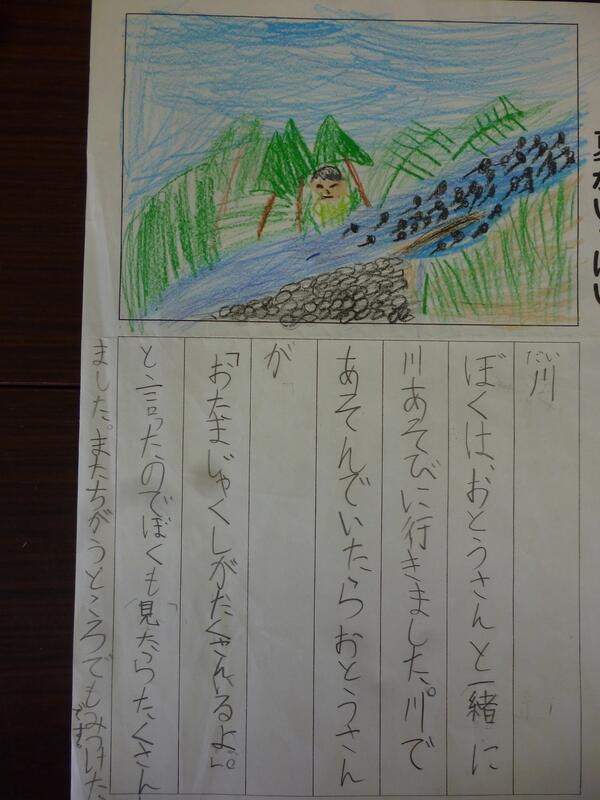 だい川
ぼくは、おとうさんと一緒に
川あそびに行きました。川で
あそんでいたらおとうさん
が
「おたまじゃくしがたくさんいるよ。」
と言ったのでぼくも見たらたくさん
ました。またちがうところでもみつけた
です。